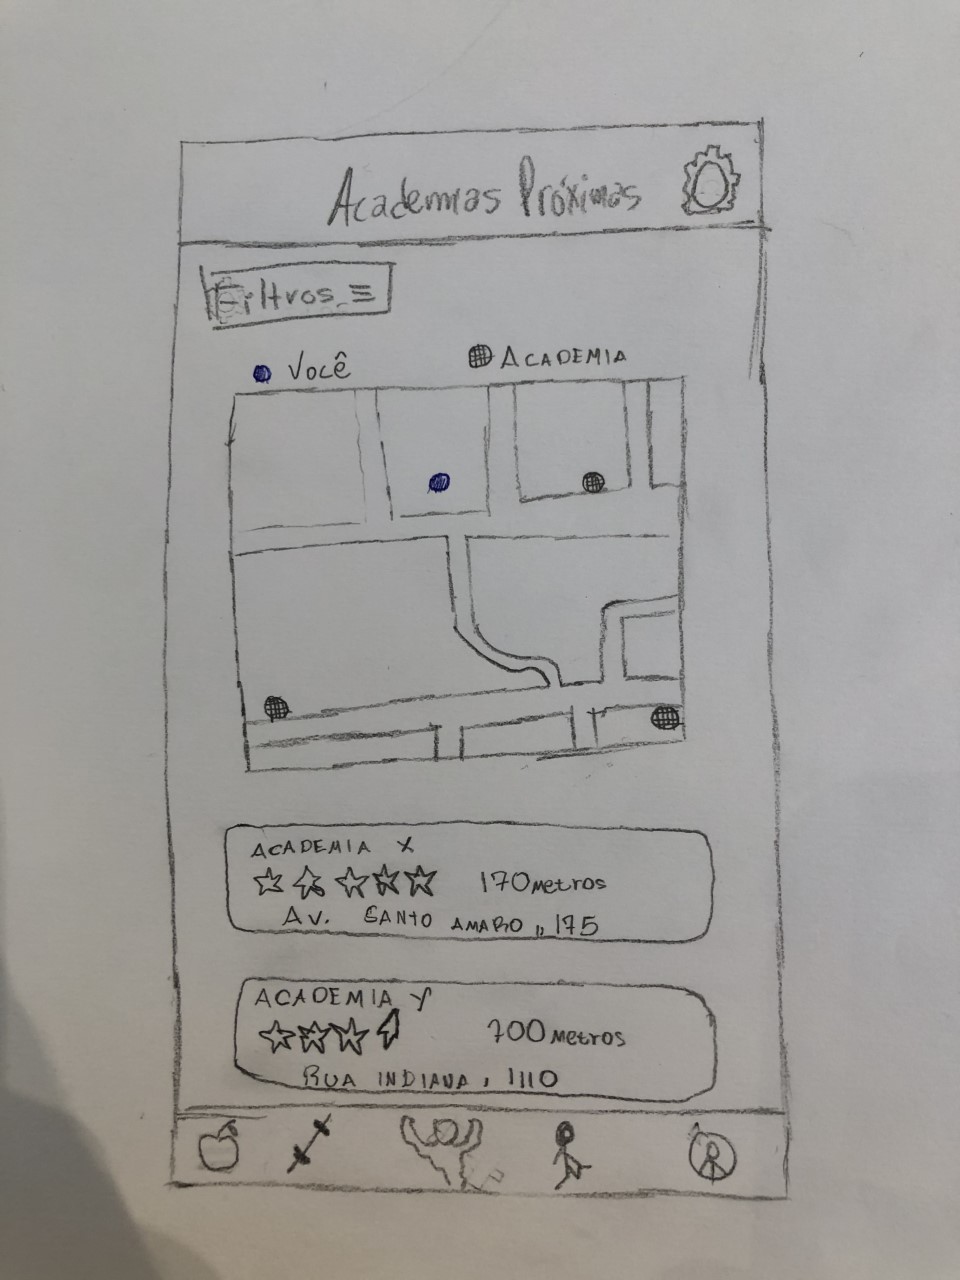 Academias Próximas
Filtros
Você
ACADEMIA
ACADEMIA X
170 metros
Av. SANTO AMARO, 175
ACADEMIA Y
700 metros
RUA INDIANA, 1110